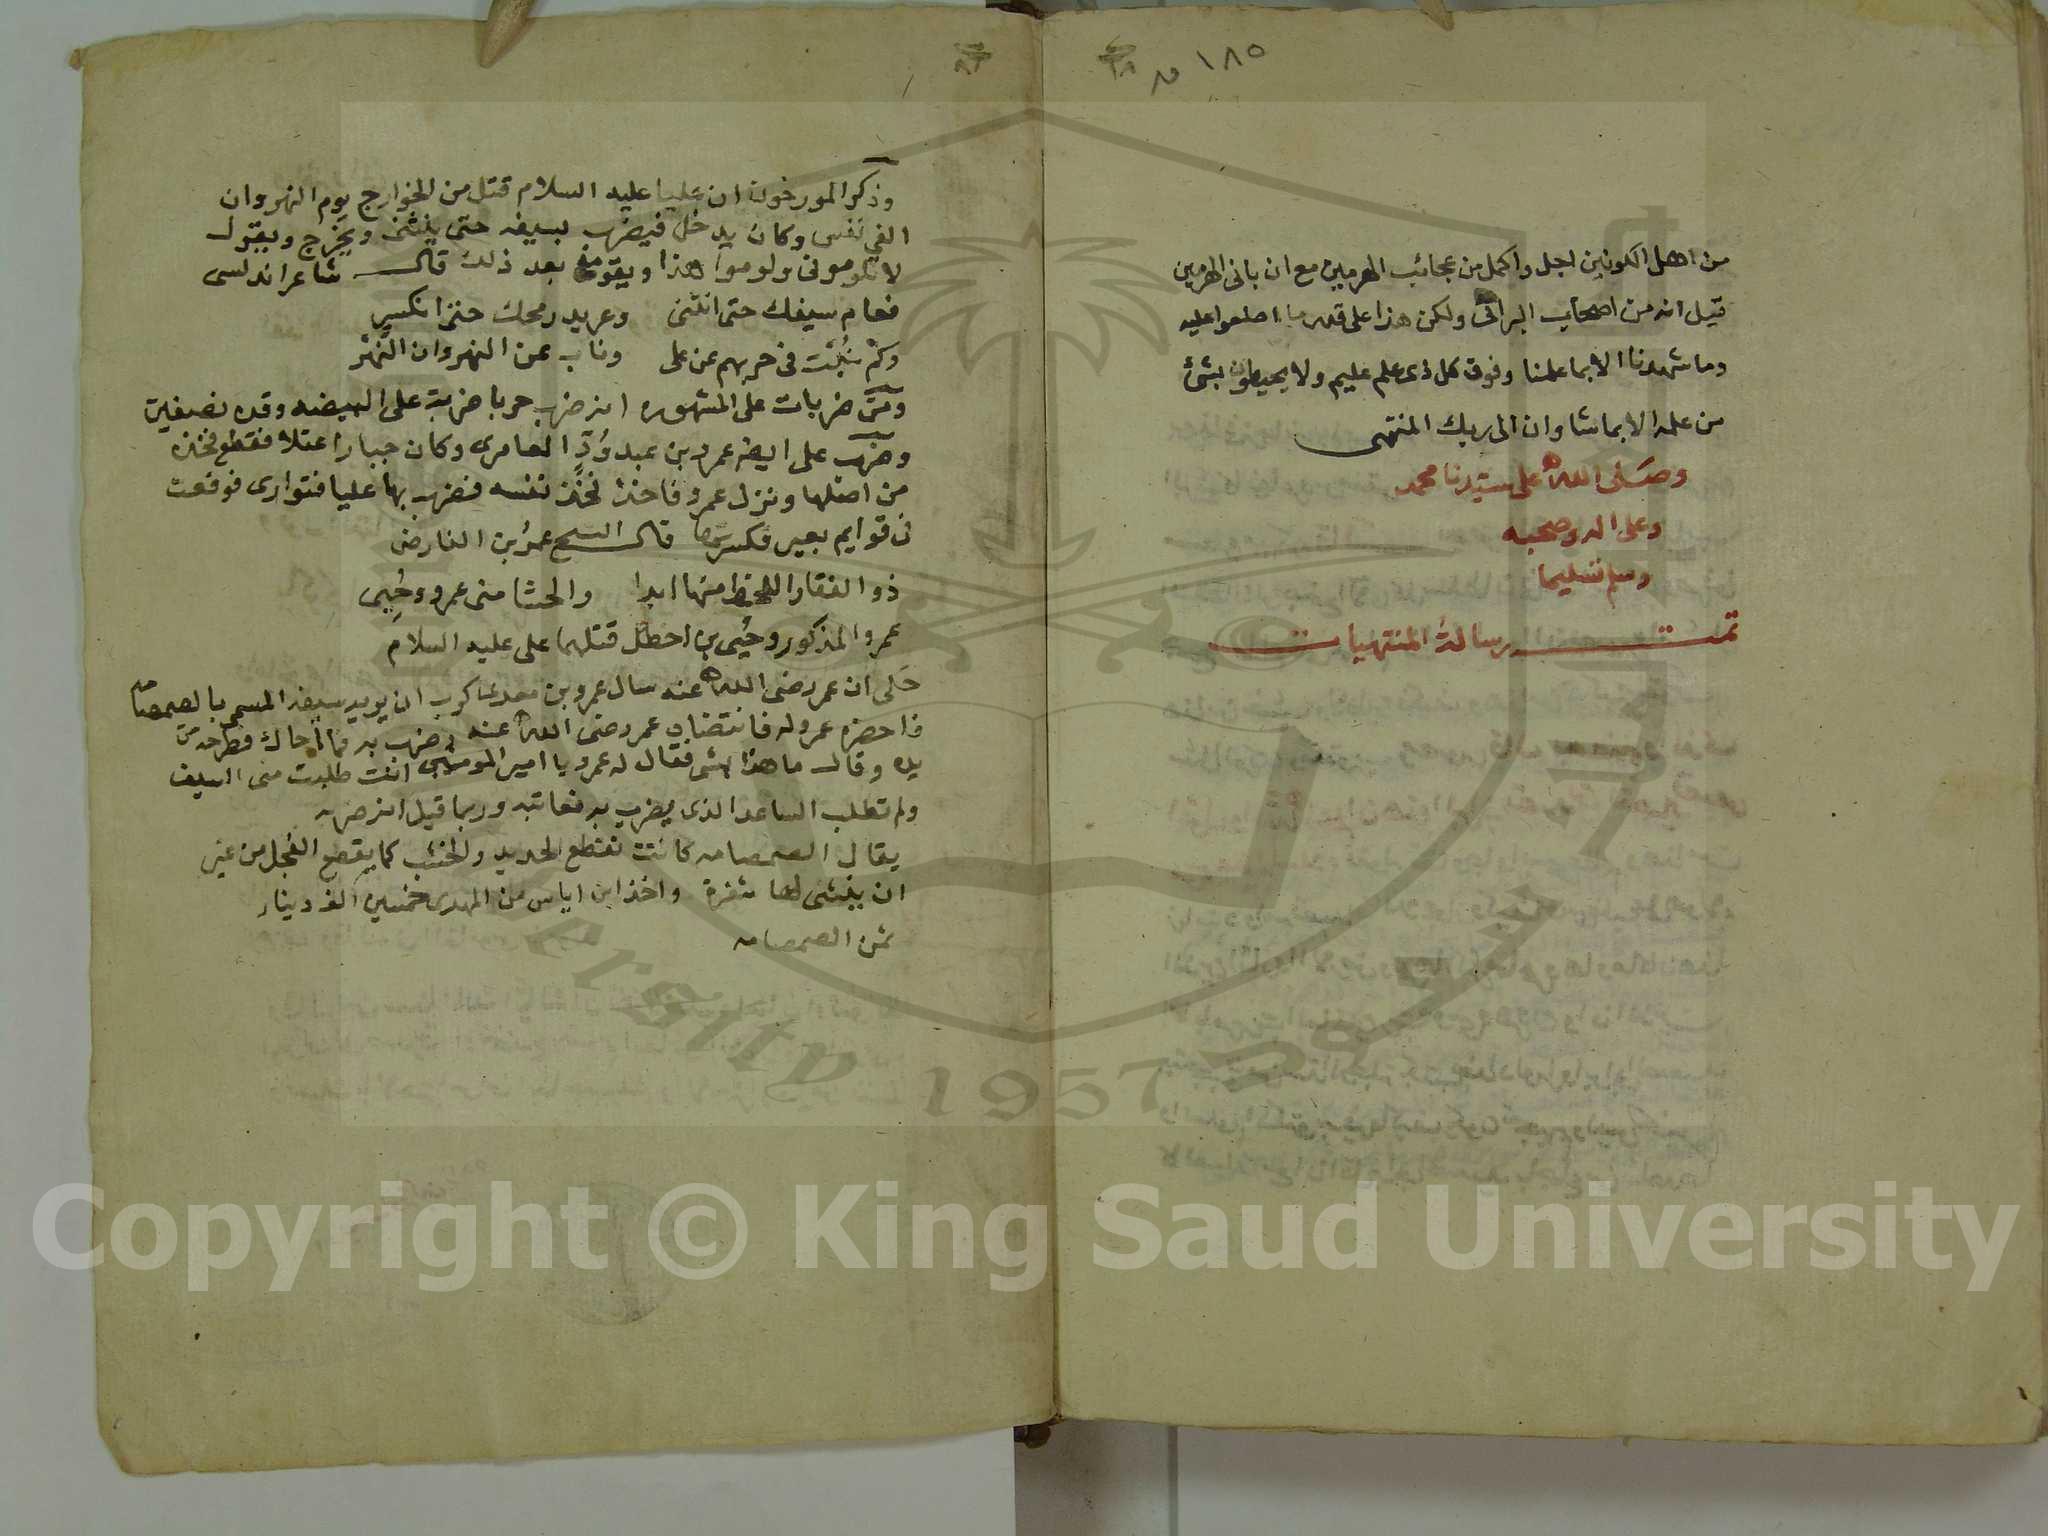 ١٨٥
من اهل الكونين اجل واكمل من عجائب الهرمين مع ان بانى الهرمين
قيل انه من اصحاب البرابى ولكن هذا على قدر ما اطلعوا عليه
وما شهدنا الا بما علمنا وفوق كل ذى علم عليم ولا يحيطون بشئ
من علمه الا بما شا وان الى ربك المنتهى
وصلى الله على سيدنا محمد
وعلى اله وصحبه
وسلم تسليما
تمت رسالة المنتهيات
وذكر المورخون ان عليا عليه السلام قتل من الخوارج يوم النهروان
الفى نفس وكان يدخل فيضرب بسيفه حتى ينثنى ويخرج ويقول
لا تلومونى ولوموا هذا ويقومه بعد ذلك قال شاعر اندلسى
فهام سيفك حتى انثنى وعربد رمحك حتى انكسر
وكم نبت فى حربهم عن على وناب عن النهروان النهر
ومن ضربات على المشهوره انه ضرب مرحبا ضربة على البيضه وقده نصفين
وضرب على ايضا عمرو بن عبد ود العامرى وكان جبارا عتلا فقطع فخذه
من اصلها ونزل عمرو فاخذ فخذ نفسه فضرب بها عليا فتوارى فوقعت
فى قوايم بعير فكسرتها قال الشيخ عمر ابن الفارض
ذو الفقار اللحظ منها ابدا والحشا منى عمرو وحيى
عمرو المذكور وحيى بن اخطل قتلهما على عليه السلام
حكى ان عمر رضى الله عنه سال عمرو بن معد يكرب ان يريه سيفه المسمى بالصمصامه
فاحضره عمرو له فانتضاه عمر رضى الله عنه وضرب به فما احاك فطرحه من
يده وقال ما هذا بشى فقال له عمرو يا امير المومنين انت طلبت منى السيف
ولم تطلب الساعد الذى يضرب به فعاتبه وربما قيل انه ضربه
يقال الصمصامه كانت تقطع الحديد والخشب كما يقطع الفجل من غير
ان ينثنى لها شفرة واخذ ابن اياس من المهدى خمسين الف دينار
ثمن الصمصامه
Copyright © King Saud University
ersity 1957